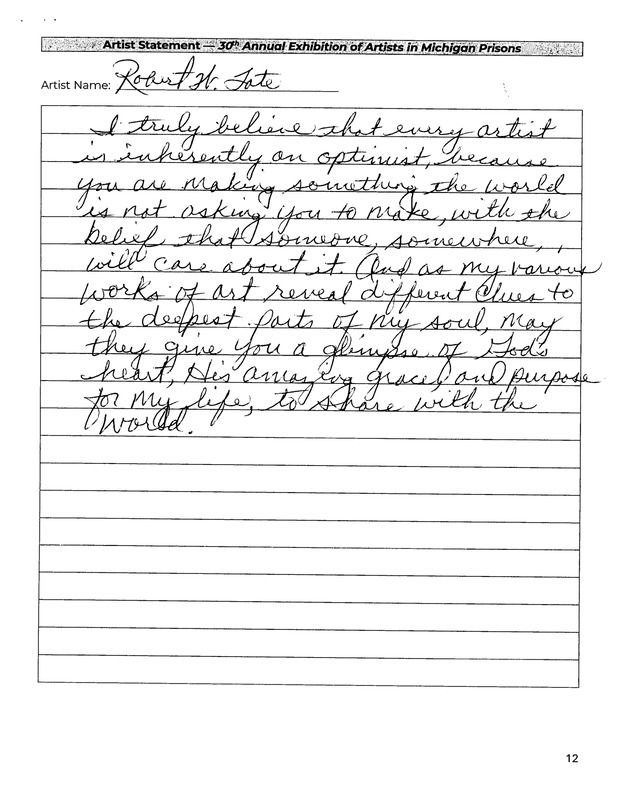 Artist Statement — 30th Annual Exhibition of Artists in Michigan Prisons
Artist Name: Robert W. Tate
I truly believe that every artist
is inherently an optimist, because
you are making something the world
is not asking you to make, with the
belief that someone, somewhere,
will care about it. And as my various
works of art reveal different clues to
the deepest parts of my soul, may
they give you a glimpse of God's
heart, His amazing grace, and purpose
for my life, to share with the
world.
12